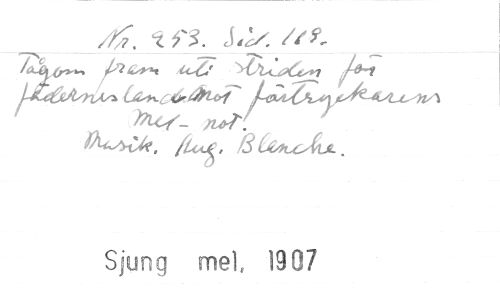 Nr. 253. Sid. 189.
Tågom fram uti striden för
fädernesland mot förtryckarens
Mel-not.
Musik. Aug. Blanche.
Sjung mel, 1907